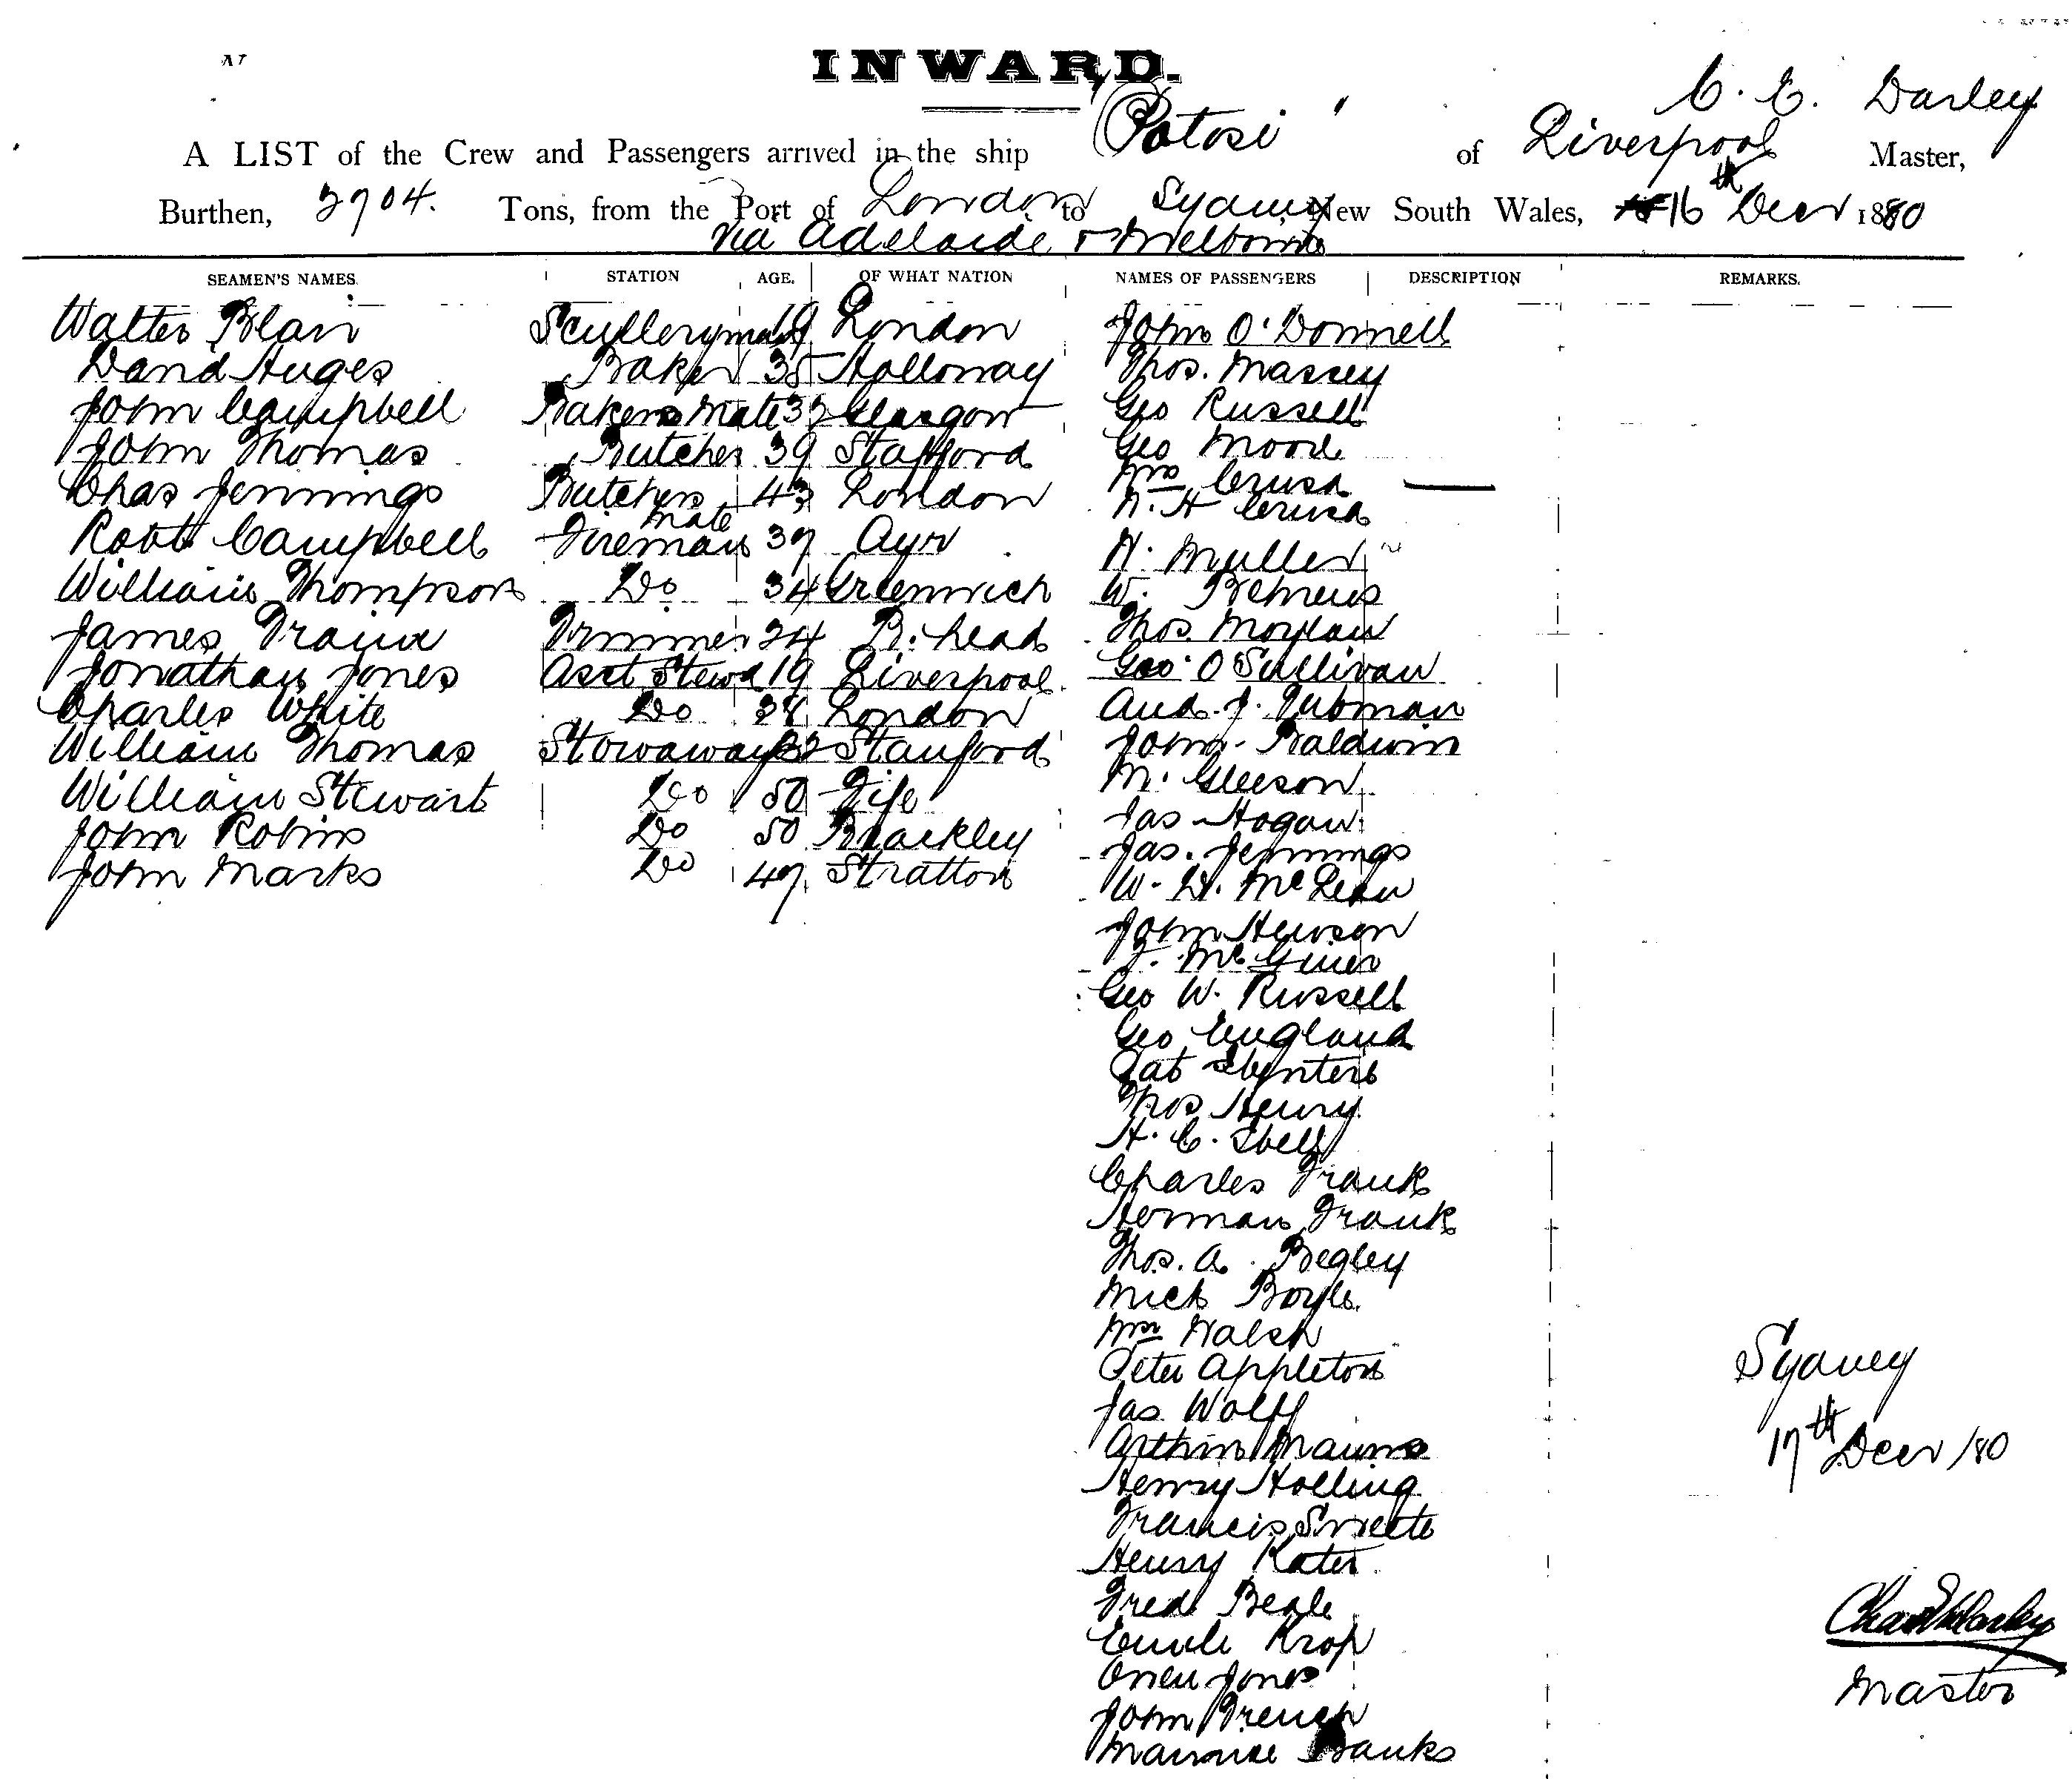 INWARD.
A LIST of the Crew and Passengers arrived in the ship "Potosi" of Liverpool C. E. Darley Master,
Burthen, 2704. Tons, from the Port of London to Sydney, New South Wales, 16th Decr 1880
via Adelaide & Melbourne
SEAMEN'S NAMES. STATION AGE. OF WHAT NATION NAMES OF PASSENGERS DESCRIPTION REMARKS.
Walter Blair Sculleryman 19 London John O'Donnell
David Auges Baker 35 Holloway Thos. Massey
John Campbell Bakers Mate 32 Glasgow Geo Russell
John Thomas Butcher 39 Stafford Geo Moore
Chas Jennings Butchers mate 43 London Mrs Crusa
N. H Crusa
Robt Campbell Fireman 37 Ayr H. Muller
William Thompson Do 34 Greenwich W. Behrens
James Trainer Trimmer 24 B.head Thos. Moylan
Jonathan Jones Asst Stewd 19 Liverpool Geo O'Sullivan
Charles White Do 28 London And. J. Tubman
William Thomas Stowaway 22 Stanford John Baldwin
M. Gleeson
William Stewart Do 50 Fife Jas Hogan
John Robins Do 50 Brackley Jas. Jennings
John Marks Do 47 Stratton W. D. McLean
John Hewson
Geo W. Russell
Geo England
Pat
Thos Henry
H. C.
Charles Frank
Herman Frank
Thos. A. Begley
Mick Boyle
Mrs Walsh
Peter Appleton
Jas Wolff
Arthur
Henry Holling
Francis
Henry Kater
Fred Beale
Emile Krop
Owen Jones
John French
Maurice Banks
Sydney
17th Decr /80
Chas E Darley
Master